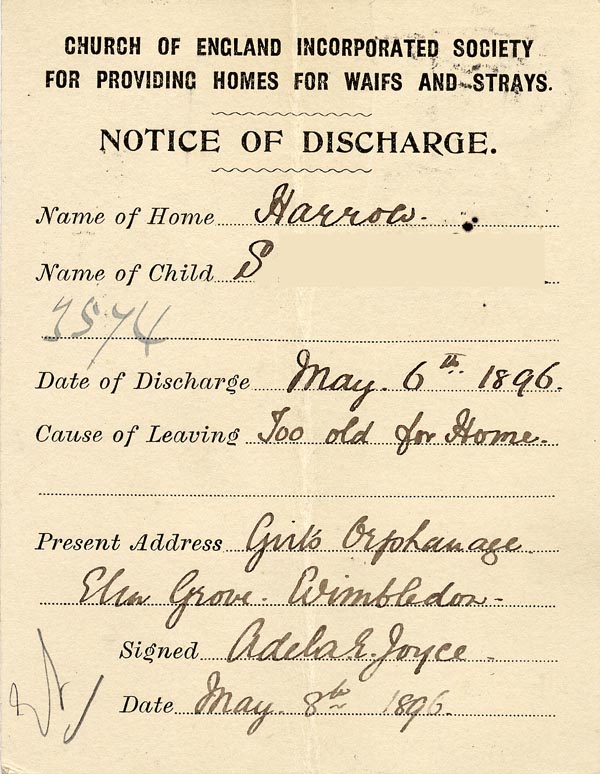 CHURCH OF ENGLAND INCORPORATED SOCIETY
FOR PROVIDING HOMES FOR WAIFS AND STRAYS.
NOTICE OF DISCHARGE.
Name of Home Harrow.
Name of Child S
3574
Date of Discharge May. 6th. 1896.
Cause of Leaving Too old for Home.
Present Address Girls Orphanage
Elm Grove. Wimbledon.
Signed Adela E. Joyce.
Date May. 8th 1896.